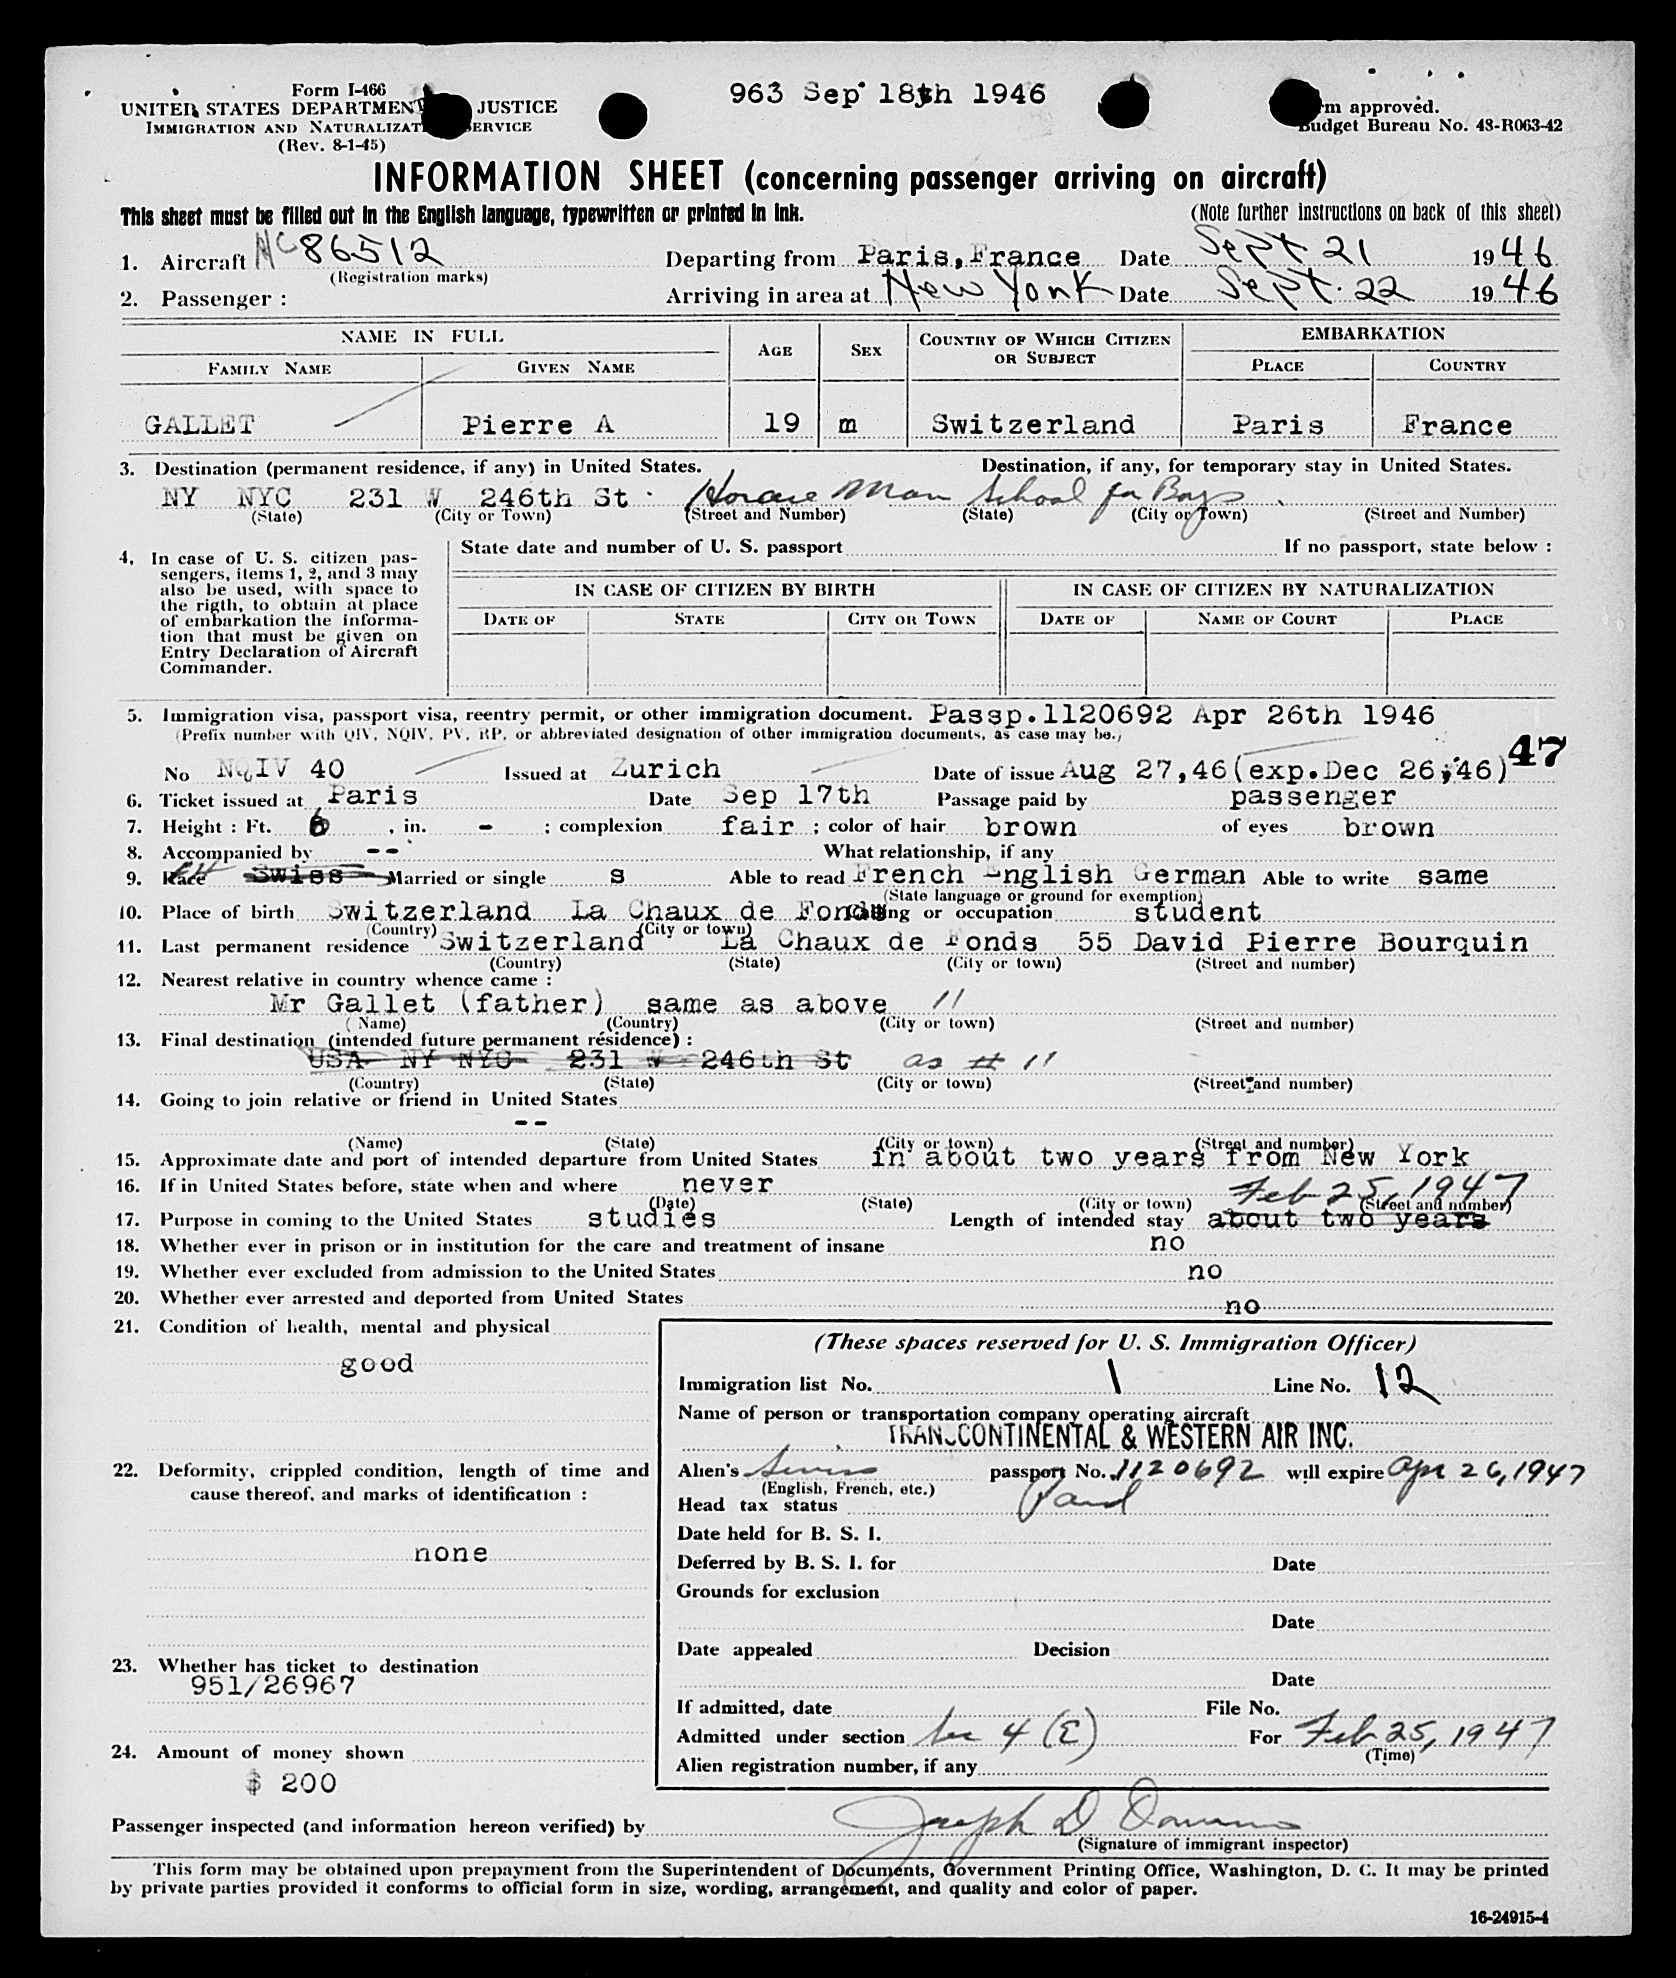 Form I-466
UNITED STATES DEPARTMENT JUSTICE
IMMIGRATION AND NATURALIZATION SERVICE
(Rev. 8-1-45)
963 Sep 18th 1946
Form approved.
Budget Bureau No. 43-R063-42
INFORMATION SHEET (concerning passenger arriving on aircraft)
This sheet must be filled out in the English language, typewritten or printed in ink.
(Note further instructions on back of this sheet)
1. Aircraft NC 86512 Departing from Paris, France Date Sept 21 1946
(Registration marks)
2. Passenger : Arriving in area at New York Date Sept. 22 1946
NAME IN FULL
FAMILY NAME GIVEN NAME AGE SEX COUNTRY OF WHICH CITIZEN OR SUBJECT EMBARKATION PLACE COUNTRY
GALLET Pierre A 19 m Switzerland Paris France
3. Destination (permanent residence, if any) in United States. Destination, if any, for temporary stay in United States.
NY NYC 231 W 246th St Horace Man School for Boys.
(State) (City or Town) (Street and Number) (State) (City or Town) (Street and Number)
4. In case of U. S. citizen pas-
sengers, items 1, 2, and 3 may
also be used, with space to
the rigth, to obtain at place
of embarkation the informa-
tion that must be given on
Entry Declaration of Aircraft
Commander.
State date and number of U. S. passport If no passport, state below :
IN CASE OF CITIZEN BY BIRTH IN CASE OF CITIZEN BY NATURALIZATION
DATE OF STATE CITY OR TOWN DATE OF NAME OF COURT PLACE
5. Immigration visa, passport visa, reentry permit, or other immigration document. Passp.1120692 Apr 26th 1946
(Prefix number with QIV, NQIV, PV, RP, or abbreviated designation of other immigration documents, as case may be.)
47
No NQIV 40 Issued at Zurich Date of issue Aug 27,46(exp.Dec 26,46)
6. Ticket issued at Paris Date Sep 17th Passage paid by passenger
7. Height : Ft. 6 , in. - ; complexion fair ; color of hair brown of eyes brown
8. Accompanied by -- What relationship, if any
9. Race Swiss Married or single s Able to read French English German Able to write same
(State language or ground for exemption)
10. Place of birth Switzerland La Chaux de Fonds Calling or occupation student
(Country) (City or town)
11. Last permanent residence Switzerland La Chaux de Fonds 55 David Pierre Bourquin
(Country) (State) (City or town) (Street and number)
12. Nearest relative in country whence came :
Mr Gallet (father) same as above 11
(Name) (Country) (City or town) (Street and number)
13. Final destination (intended future permanent résidence) :
USA NY NYC 231 W 246th St as # 11
(Country) (State) (City or town) (Street and number)
14. Going to join relative or friend in United States
--
(Name) (State) (City or town) (Street and number)
15. Approximate date and port of intended departure from United States in about two years from New York
16. If in United States before, state when and where never
(Date) (State) (City or town) (Street and number)
Feb 25, 1947
17. Purpose in coming to the United States studies Length of intended stay about two years
18. Whether ever in prison or in institution for the care and treatment of insane no
19. Whether ever excluded from admission to the United States no
20. Whether ever arrested and deported from United States no
21. Condition of health, mental and physical
good
22. Deformity, crippled condition, length of time and
cause thereof, and marks of identification :
none
23. Whether has ticket to destination
951/26967
24. Amount of money shown
$ 200
(These spaces reserved for U. S. Immigration Officer)
Immigration list No. 1 Line No. 12
Name of person or transportation company operating aircraft
TRANSCONTINENTAL & WESTERN AIR INC.
Alien's Swiss passport No. 1120692 will expire Apr 26, 1947
(English, French, etc.)
Head tax status Paid
Date held for B. S. I.
Deferred by B. S. I. for Date
Grounds for exclusion
Date
Date appealed Decision
Date
If admitted, date File No.
Admitted under section Sec 4 (E) For Feb 25, 1947
(Time)
Alien registration number, if any
Passenger inspected (and information hereon verified) by Joseph D
(Signature of immigrant inspector)
This form may be obtained upon prepayment from the Superintendent of Documents, Government Printing Office, Washington, D. C. It may be printed
by private parties provided it conforms to official form in size, wording, arrangement, and quality and color of paper.
16-24915-4